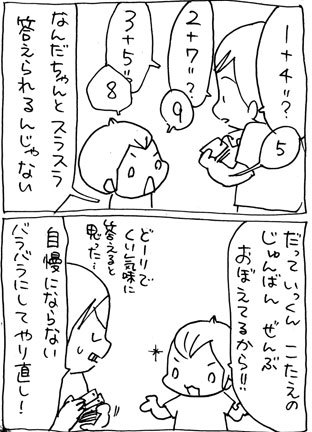 1+4=?
5
2+7=?
9
3+5=
8
なんだちゃんとスラスラ
答えられるんじゃない
だっていっくん こたえの
じゅんばん ぜんぶ
おぼえてるから!!
どーりで
くい気味に
答えると
思った…
自慢にならない
バラバラにしてやり直し!